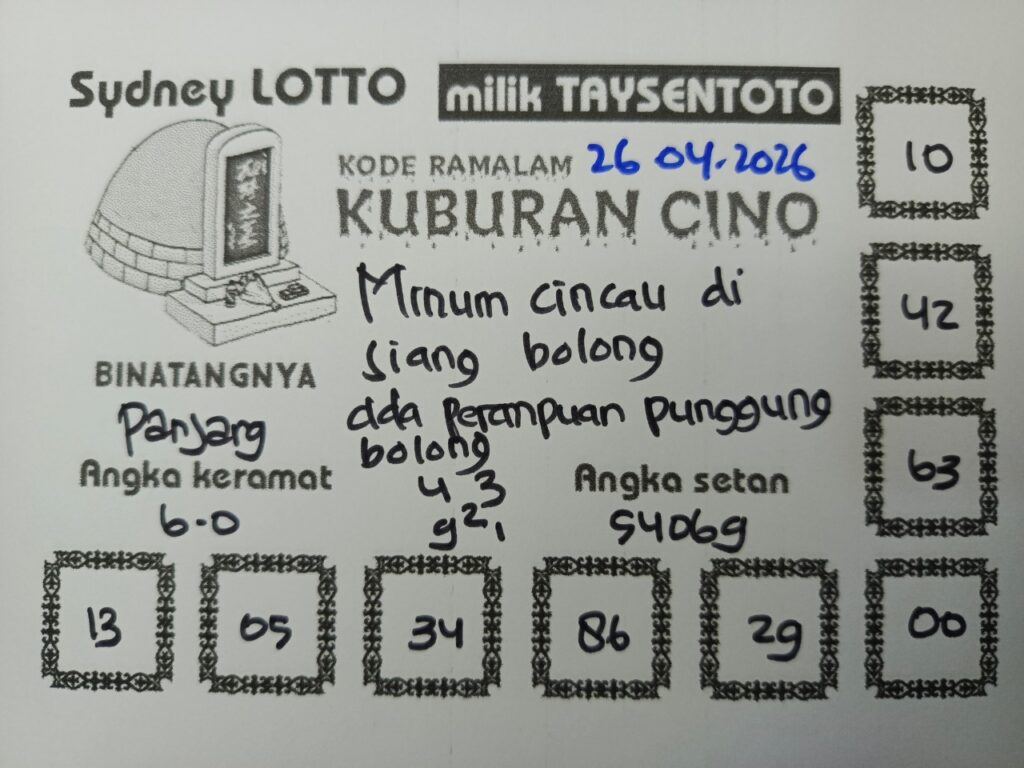 Sydney LOTTO
milik TAYSENTOTO
KODE RAMALAM 26 04.2026
KUBURAN CINO
Minum cincau di
siang bolong
ada perampuan punggung
bolong
4 3
9 2 1
BINATANGNYA
Panjang
Angka keramat
6-0
Angka setan
54069
10
42
63
13 05 34 86 29 00